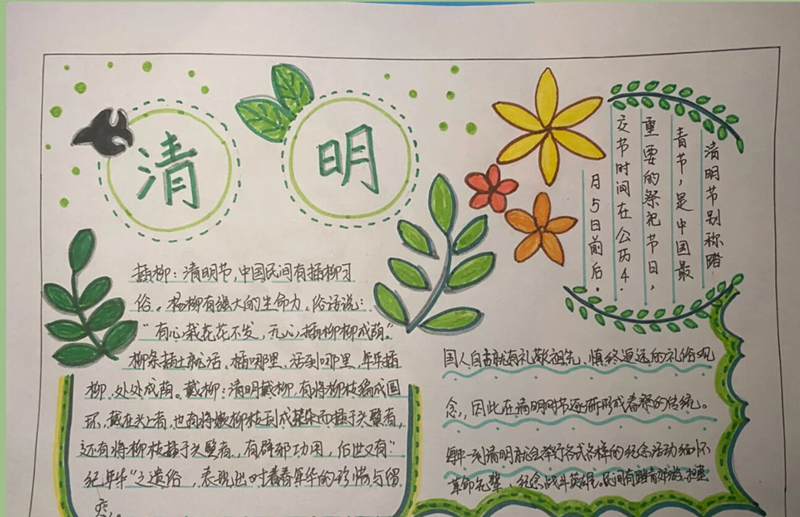 清明
插柳：清明节，中国民间有插柳习
俗。杨柳有强大的生命力，俗话说：
"有心栽花花不发，无心插柳柳成荫。"
柳条插土就活，插哪里，活到哪里，年年插
柳，处处成荫。戴柳：清明戴柳，有将柳枝编成圆
环，戴在头上者，也有将嫩柳枝成而插于头髻者，
还有将柳枝插于头髻者。有辟邪功用，但也又有"
纪年华"之遗俗，表现出对青春年华的珍惜与留
恋。
清明节别称踏
青节，是中国最
重要的祭祀节日，
交节时间在公历4.
月5日前后。
国人自古就有礼敬祖先、慎终追远的礼俗观
念，因此在清明时节逐渐形成春祭的传统。
每年一到清明就会举行各式各样的纪念活动缅怀
革命先辈，纪念战斗英雄，民间有踏青郊游